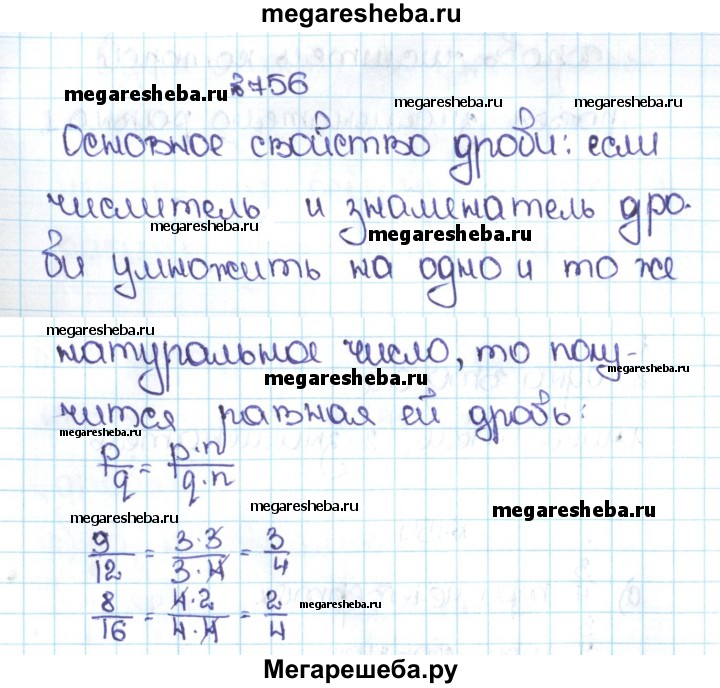 megaresheba.ru
№756
megaresheba.ru
megaresheba.ru
megaresheba.ru
Основное свойство дроби: если
числитель и знаменатель дро-
megaresheba.ru
megaresheba.ru
би умножить на одно и то же
megaresheba.ru
натуральное число, то полу-
megaresheba.ru
megaresheba.ru
чится равная ей дробь:
megaresheba.ru
p/q = p·n/q·n
megaresheba.ru
megaresheba.ru
megaresheba.ru
9/12 = 3·3/3·4 = 3/4
8/16 = 4·2/4·4 = 2/4
megaresheba.ru
Мегарешеба.ру